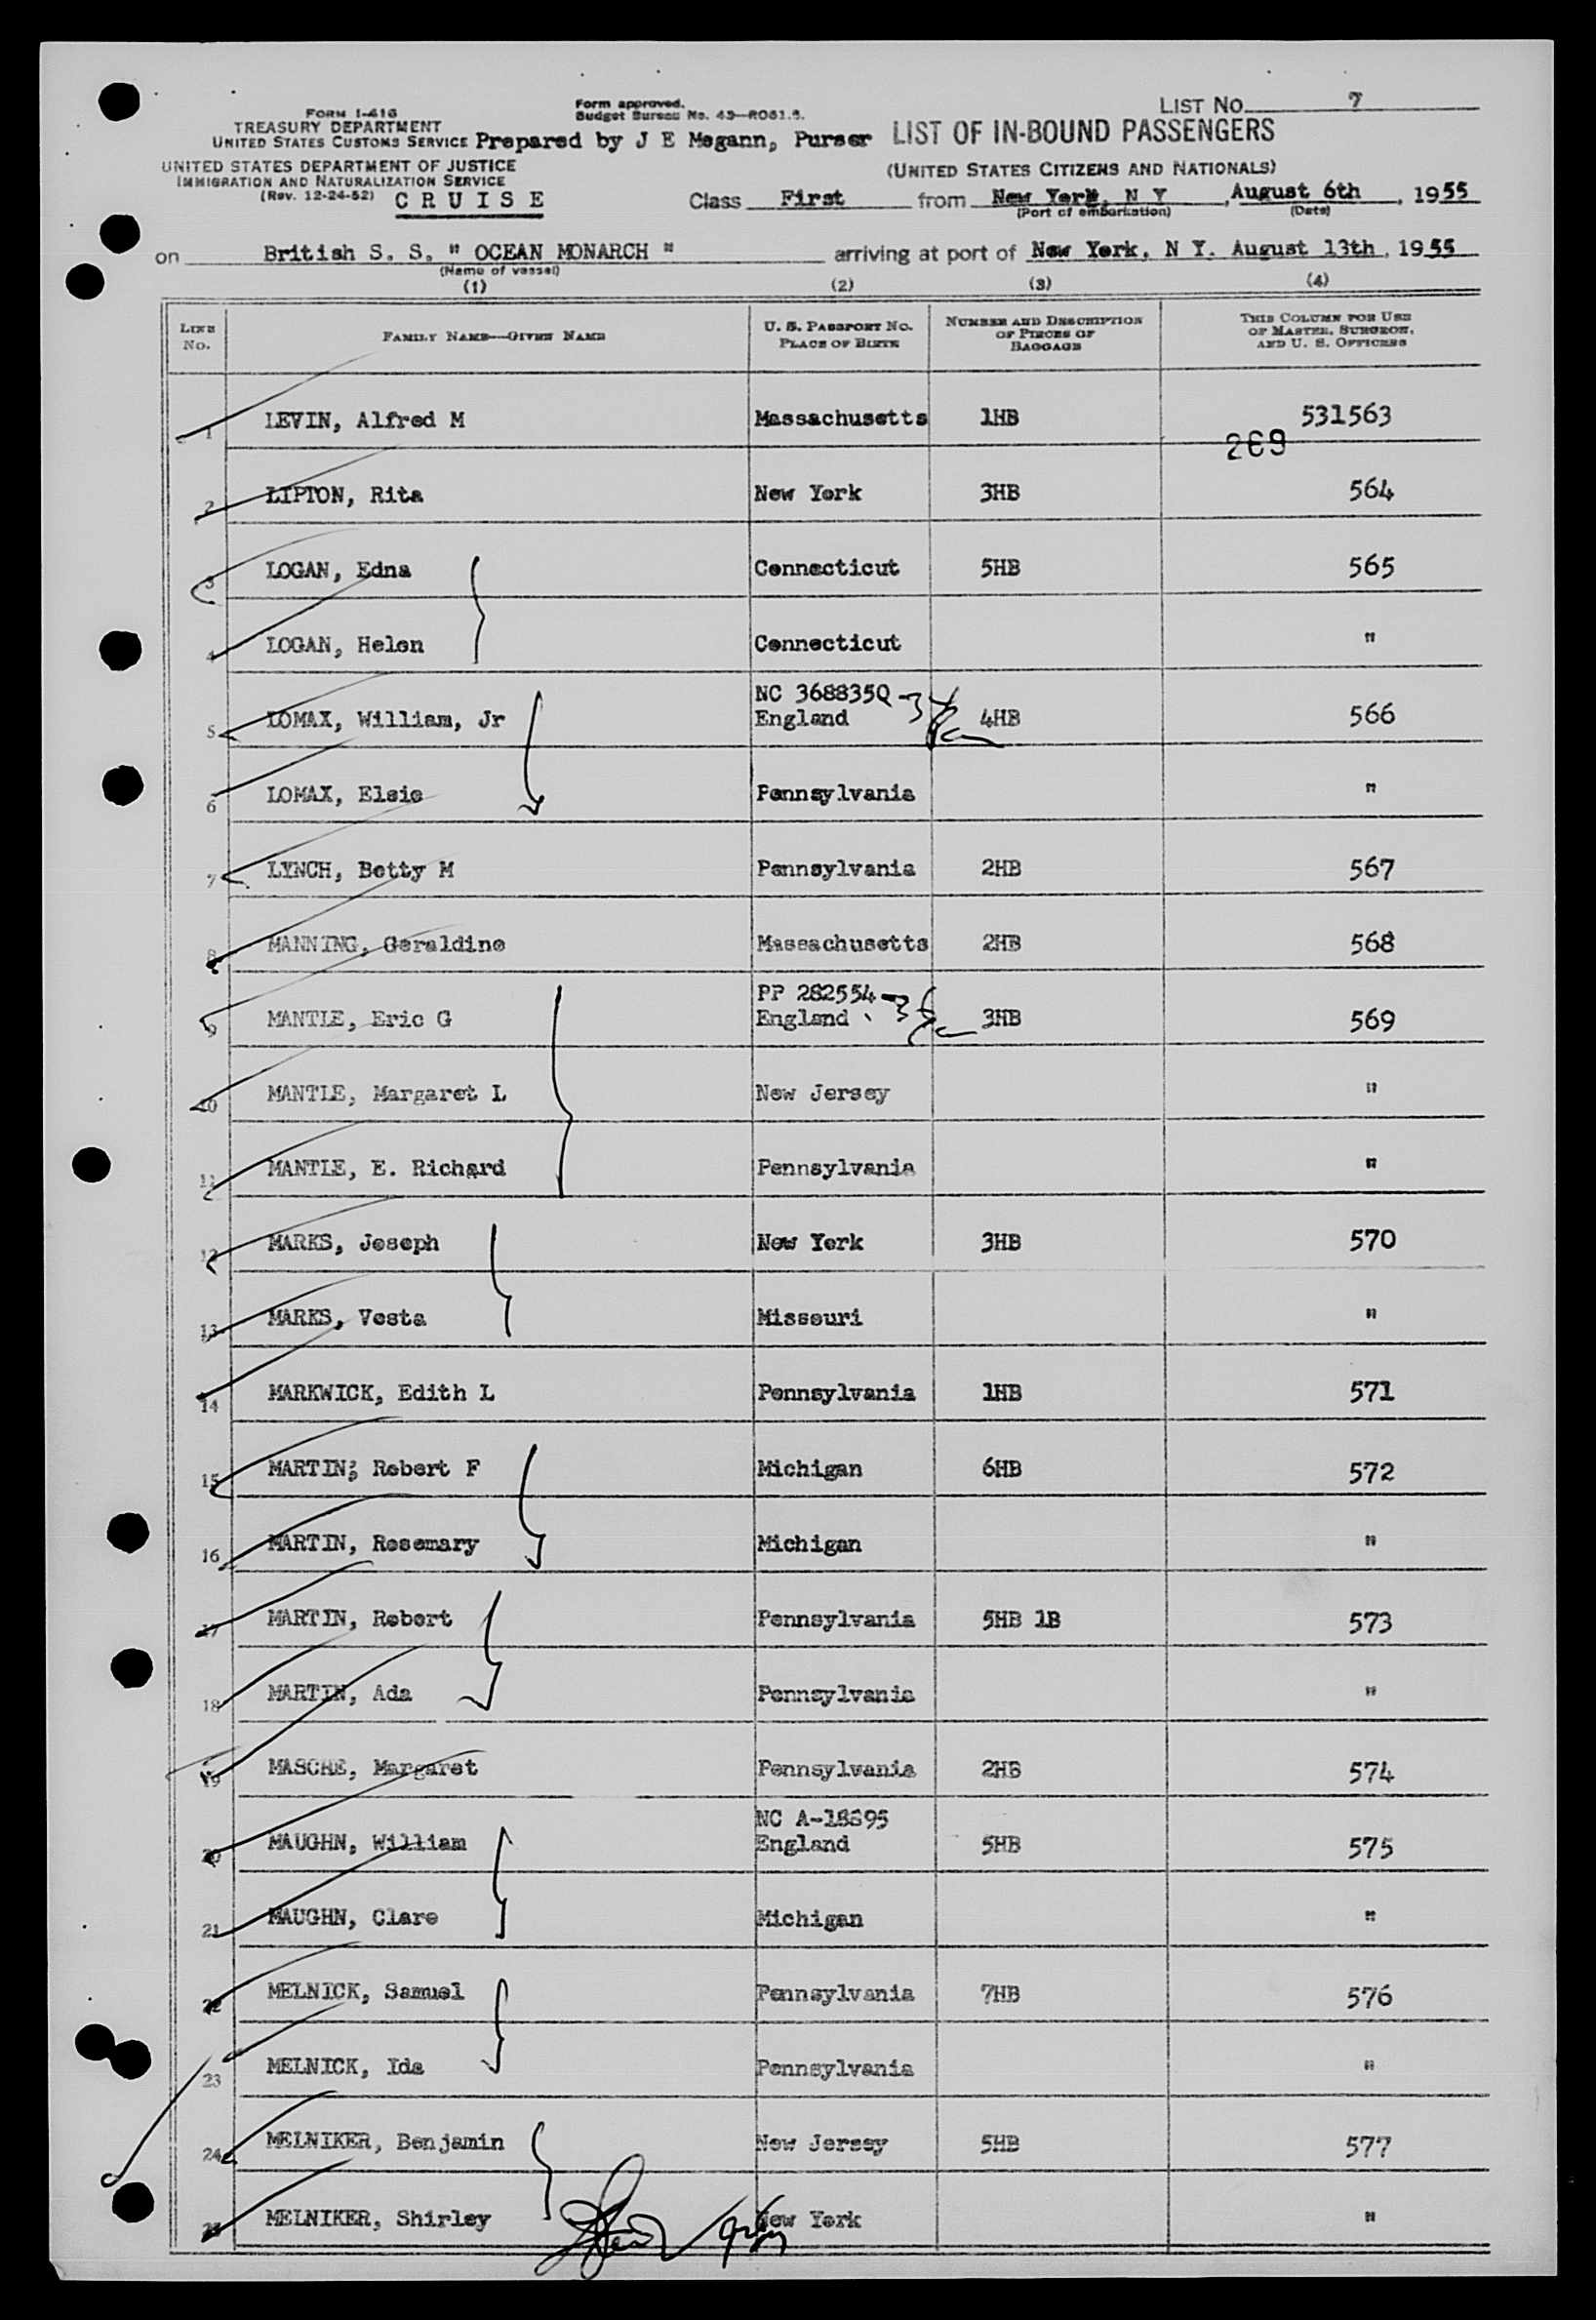 FORM I-416
TREASURY DEPARTMENT
UNITED STATES CUSTOMS SERVICE
UNITED STATES DEPARTMENT OF JUSTICE
IMMIGRATION AND NATURALIZATION SERVICE
(Rev. 12-24-52) C R U I S E
Form approved.
Budget Bureau No. 43—R061.
Prepared by J E Megann, Purser
LIST No. 7
LIST OF IN-BOUND PASSENGERS
(UNITED STATES CITIZENS AND NATIONALS)
Class First from New York, N Y, August 6th, 1955
(Port of embarkation) (Date)
on British S. S. " OCEAN MONARCH " arriving at port of New York, N Y. August 13th, 1955
(Name of vessel)
(1) (2) (3) (4)
LINE No. FAMILY NAME—GIVEN NAME U. S. PASSPORT NO. PLACE OF BIRTH NUMBER AND DESCRIPTION OF PIECES OF BAGGAGE THIS COLUMN FOR USE OF MASTER, SURGEON, AND U. S. OFFICERS
1 LEVIN, Alfred M Massachusetts 1HB 531563
269
2 LIPTON, Rita New York 3HB 564
3 LOGAN, Edna Connecticut 5HB 565
4 LOGAN, Helen Connecticut "
NC 368835Q
5 LOMAX, William, Jr England 4HB 566
6 LOMAX, Elsie Pennsylvania "
7 LYNCH, Betty M Pennsylvania 2HB 567
8 MANNING, Geraldine Massachusetts 2HB 568
PP 282554
9 MANTLE, Eric G England 3HB 569
10 MANTLE, Margaret L New Jersey "
11 MANTLE, E. Richard Pennsylvania "
12 MARKS, Joseph New York 3HB 570
13 MARKS, Vesta Missouri "
14 MARKWICK, Edith L Pennsylvania 1HB 571
15 MARTIN, Robert F Michigan 6HB 572
16 MARTIN, Rosemary Michigan "
17 MARTIN, Robert Pennsylvania 5HB 1B 573
18 MARTIN, Ada Pennsylvania "
19 MASCHE, Margaret Pennsylvania 2HB 574
NC A-18895
20 MAUGHN, William England 5HB 575
21 MAUGHN, Clare Michigan "
22 MELNICK, Samuel Pennsylvania 7HB 576
23 MELNICK, Ida Pennsylvania "
24 MELNIKER, Benjamin New Jersey 5HB 577
25 MELNIKER, Shirley New York "